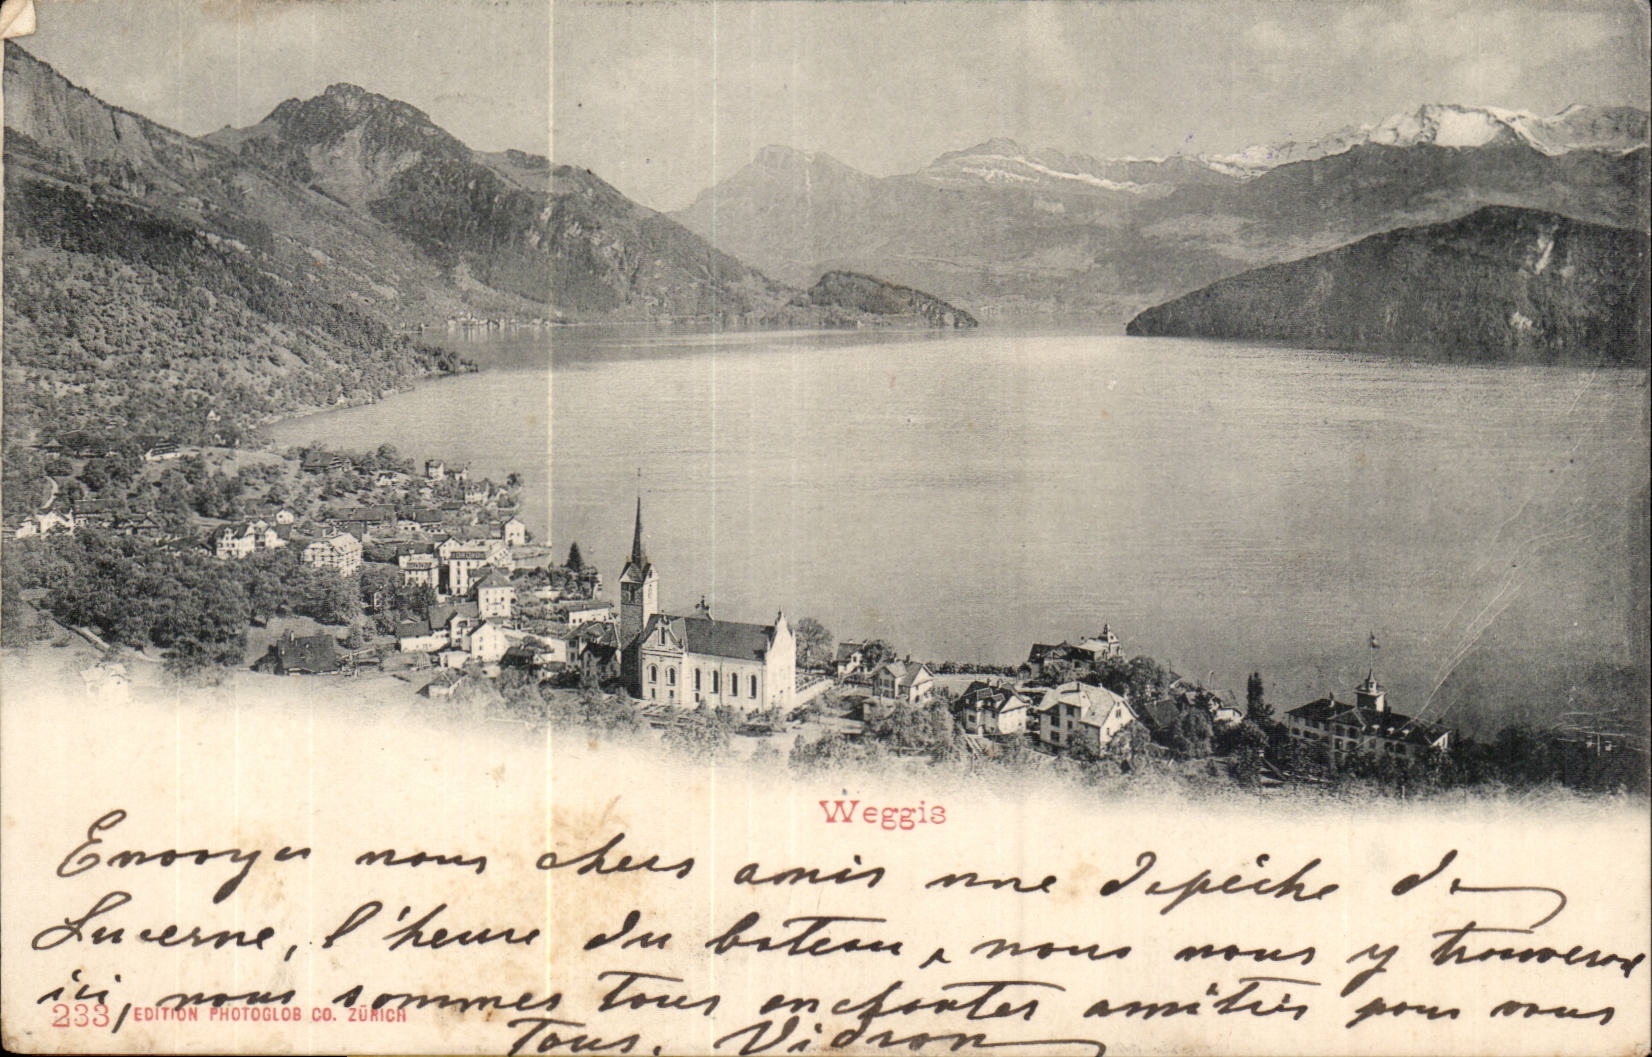 Weggis
Envoyez nous chers amis une depêche de
Lucerne, l'heure du bateau, nous nous y trouverons
ici, nous sommes tous enchantes amitiés pour vous
233, EDITION PHOTOGLOB CO. ZÜRICH
Tous.